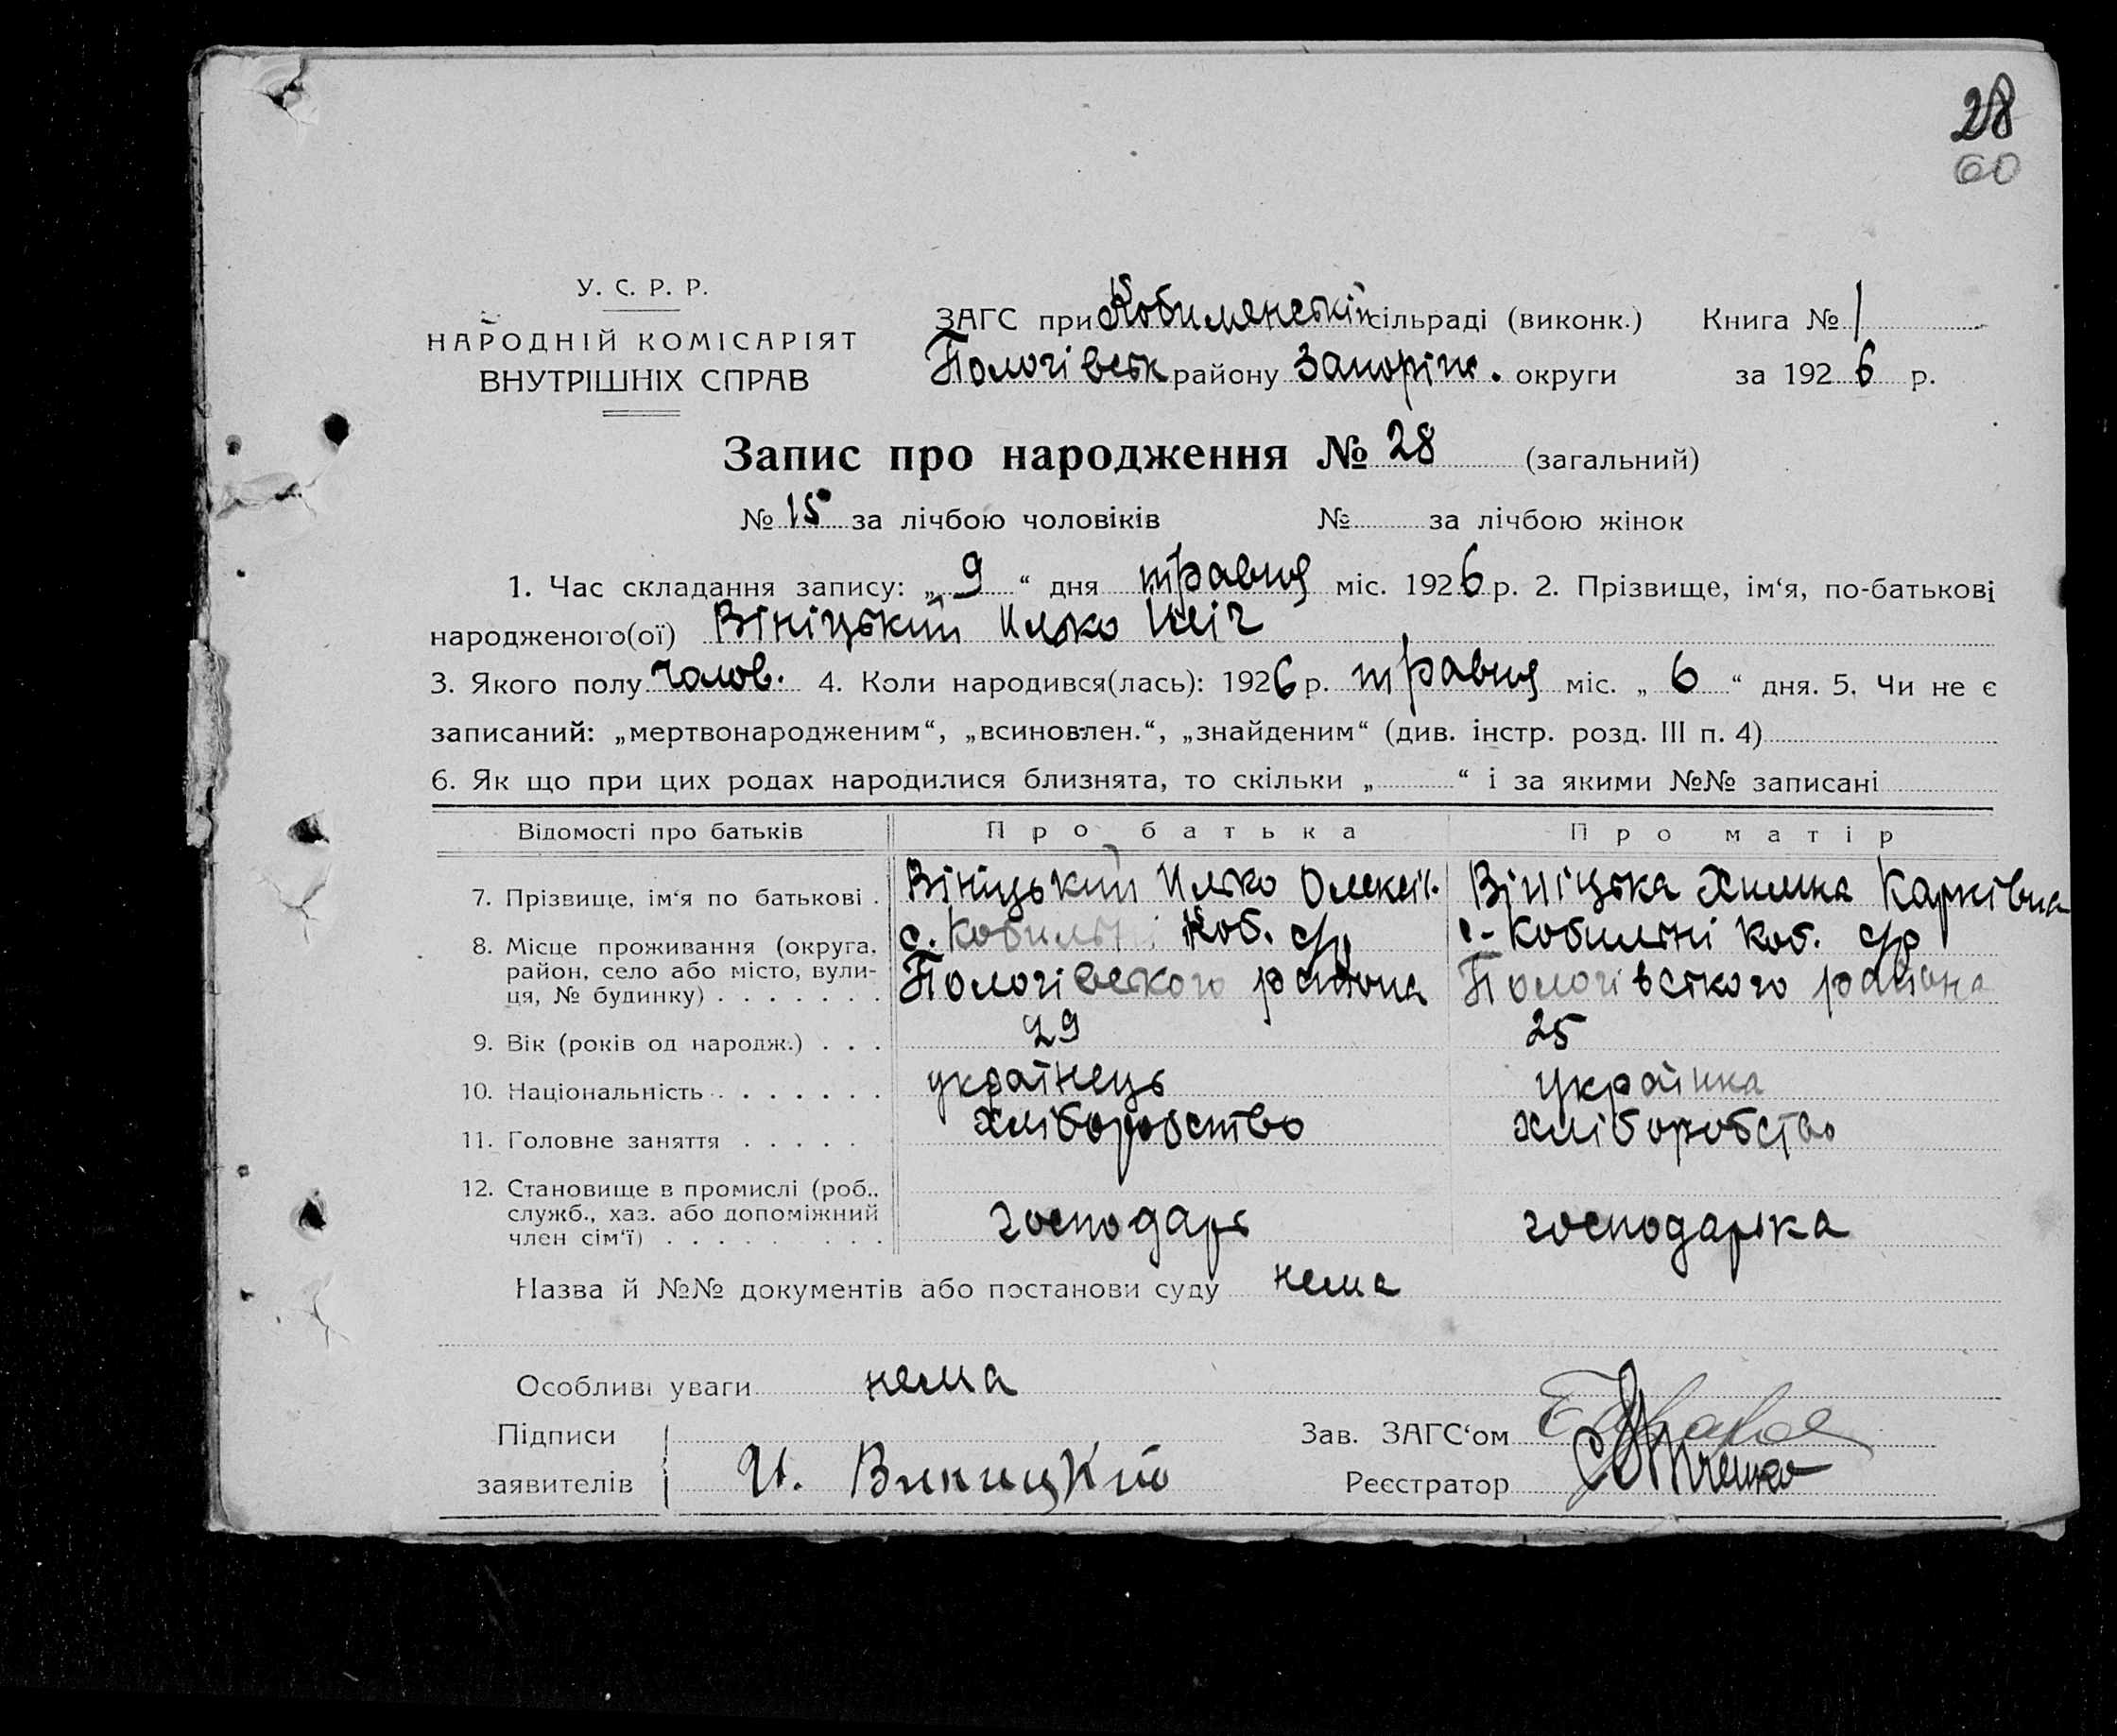 28
60
У. С. Р. Р.
НАРОДНІЙ КОМІСАРІЯТ
ВНУТРІШНІХ СПРАВ
ЗАГС при сільраді (виконк.) Книга № 1
Пологівськ району Запоріж. округи за 1926 р.
Запис про народження № 28 (загальний)
№ 15 за лічбою чоловіків № за лічбою жінок
1. Час складання запису: „ 9 “ дня травня міс. 1926 р. 2. Прізвище, ім‘я, по-батькові
народженого(ої) Вініцький Илько
3. Якого полу чолов. 4. Коли народився(лась): 1926 р. травня міс. „ 6 “ дня. 5. Чи не є
записаний: „мертвонародженим“, „всиновлен.“, „знайденим“ (див. інстр. розд. III п. 4)
6. Як що при цих родах народилися близнята, то скільки „ “ і за якими №№ записані
Відомості про батьків Про батька Про матір
7. Прізвище, ім‘я по батькові . Вініцький Илько Олексі. Вініцька Карпівна
8. Місце проживання (округа, с. Кобильні Коб. с/р с. Кобильні Коб. с/р
район, село або місто, вули- Пологівського района Пологівського района
ця, № будинку) . . . . . . .
9. Вік (років од народж.) . . . 29 25
10. Національність . . . . . . . українець українка
11. Головне заняття . . . . . хліборобство хліборобство
12. Становище в промислі (роб.,
служб., хаз. або допоміжний господарь господарька
член сім‘ї) . . . . . . . . .
Назва й №№ документів або постанови суду нема
Особливі уваги нема
Підписи Зав. ЗАГС‘ом
заявителів И. Виницкий Реєстратор